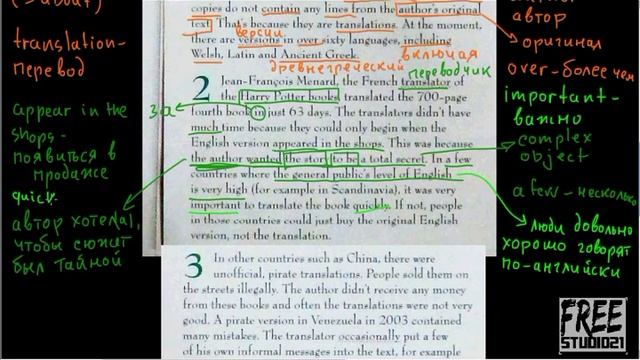 copies do not contain any lines from the author's original
text. That's because they are translations. At the moment,
версии
there are versions in over sixty languages, including
Welsh, Latin and Ancient Greek. включая
древнегреческий
переводчик
2 Jean-François Menard, the French translator of
the Harry Potter books, translated the 700-page
за
fourth book in just 63 days. The translators didn't have
much time because they could only begin when the
English version appeared in the shops. This was because
the author wanted the story to be a total secret. In a few
countries where the general public's level of English
is very high (for example in Scandinavia), it was very
important to translate the book quickly. If not, people
in those countries could just buy the original English
version, not the translation.
3 In other countries such as China, there were
unofficial, pirate translations. People sold them on
the streets illegally. The author didn't receive any money
from these books and often the translations were not very
good. A pirate version in Venezuela in 2003 contained
many mistakes. The translator occasionally put a few
of his own informal messages into the text, for example
translation-
перевод
appear in the
shops-
появиться в
продаже
quick
автор хотел(а),
чтобы сюжет
был тайной
автор
оригинал
over-более чем
important-
важно
complex
object
a few-несколько
люди довольно
хорошо говорят
по-английски
FREE
STUDIO21